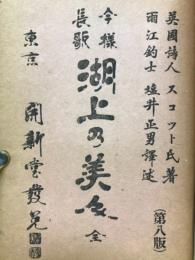 英國詩人 スコット氏著
雨江釣士 塩井正男譯述
(第八版)
今様
長歌
湖上の美人
全
東京
開新堂發兌